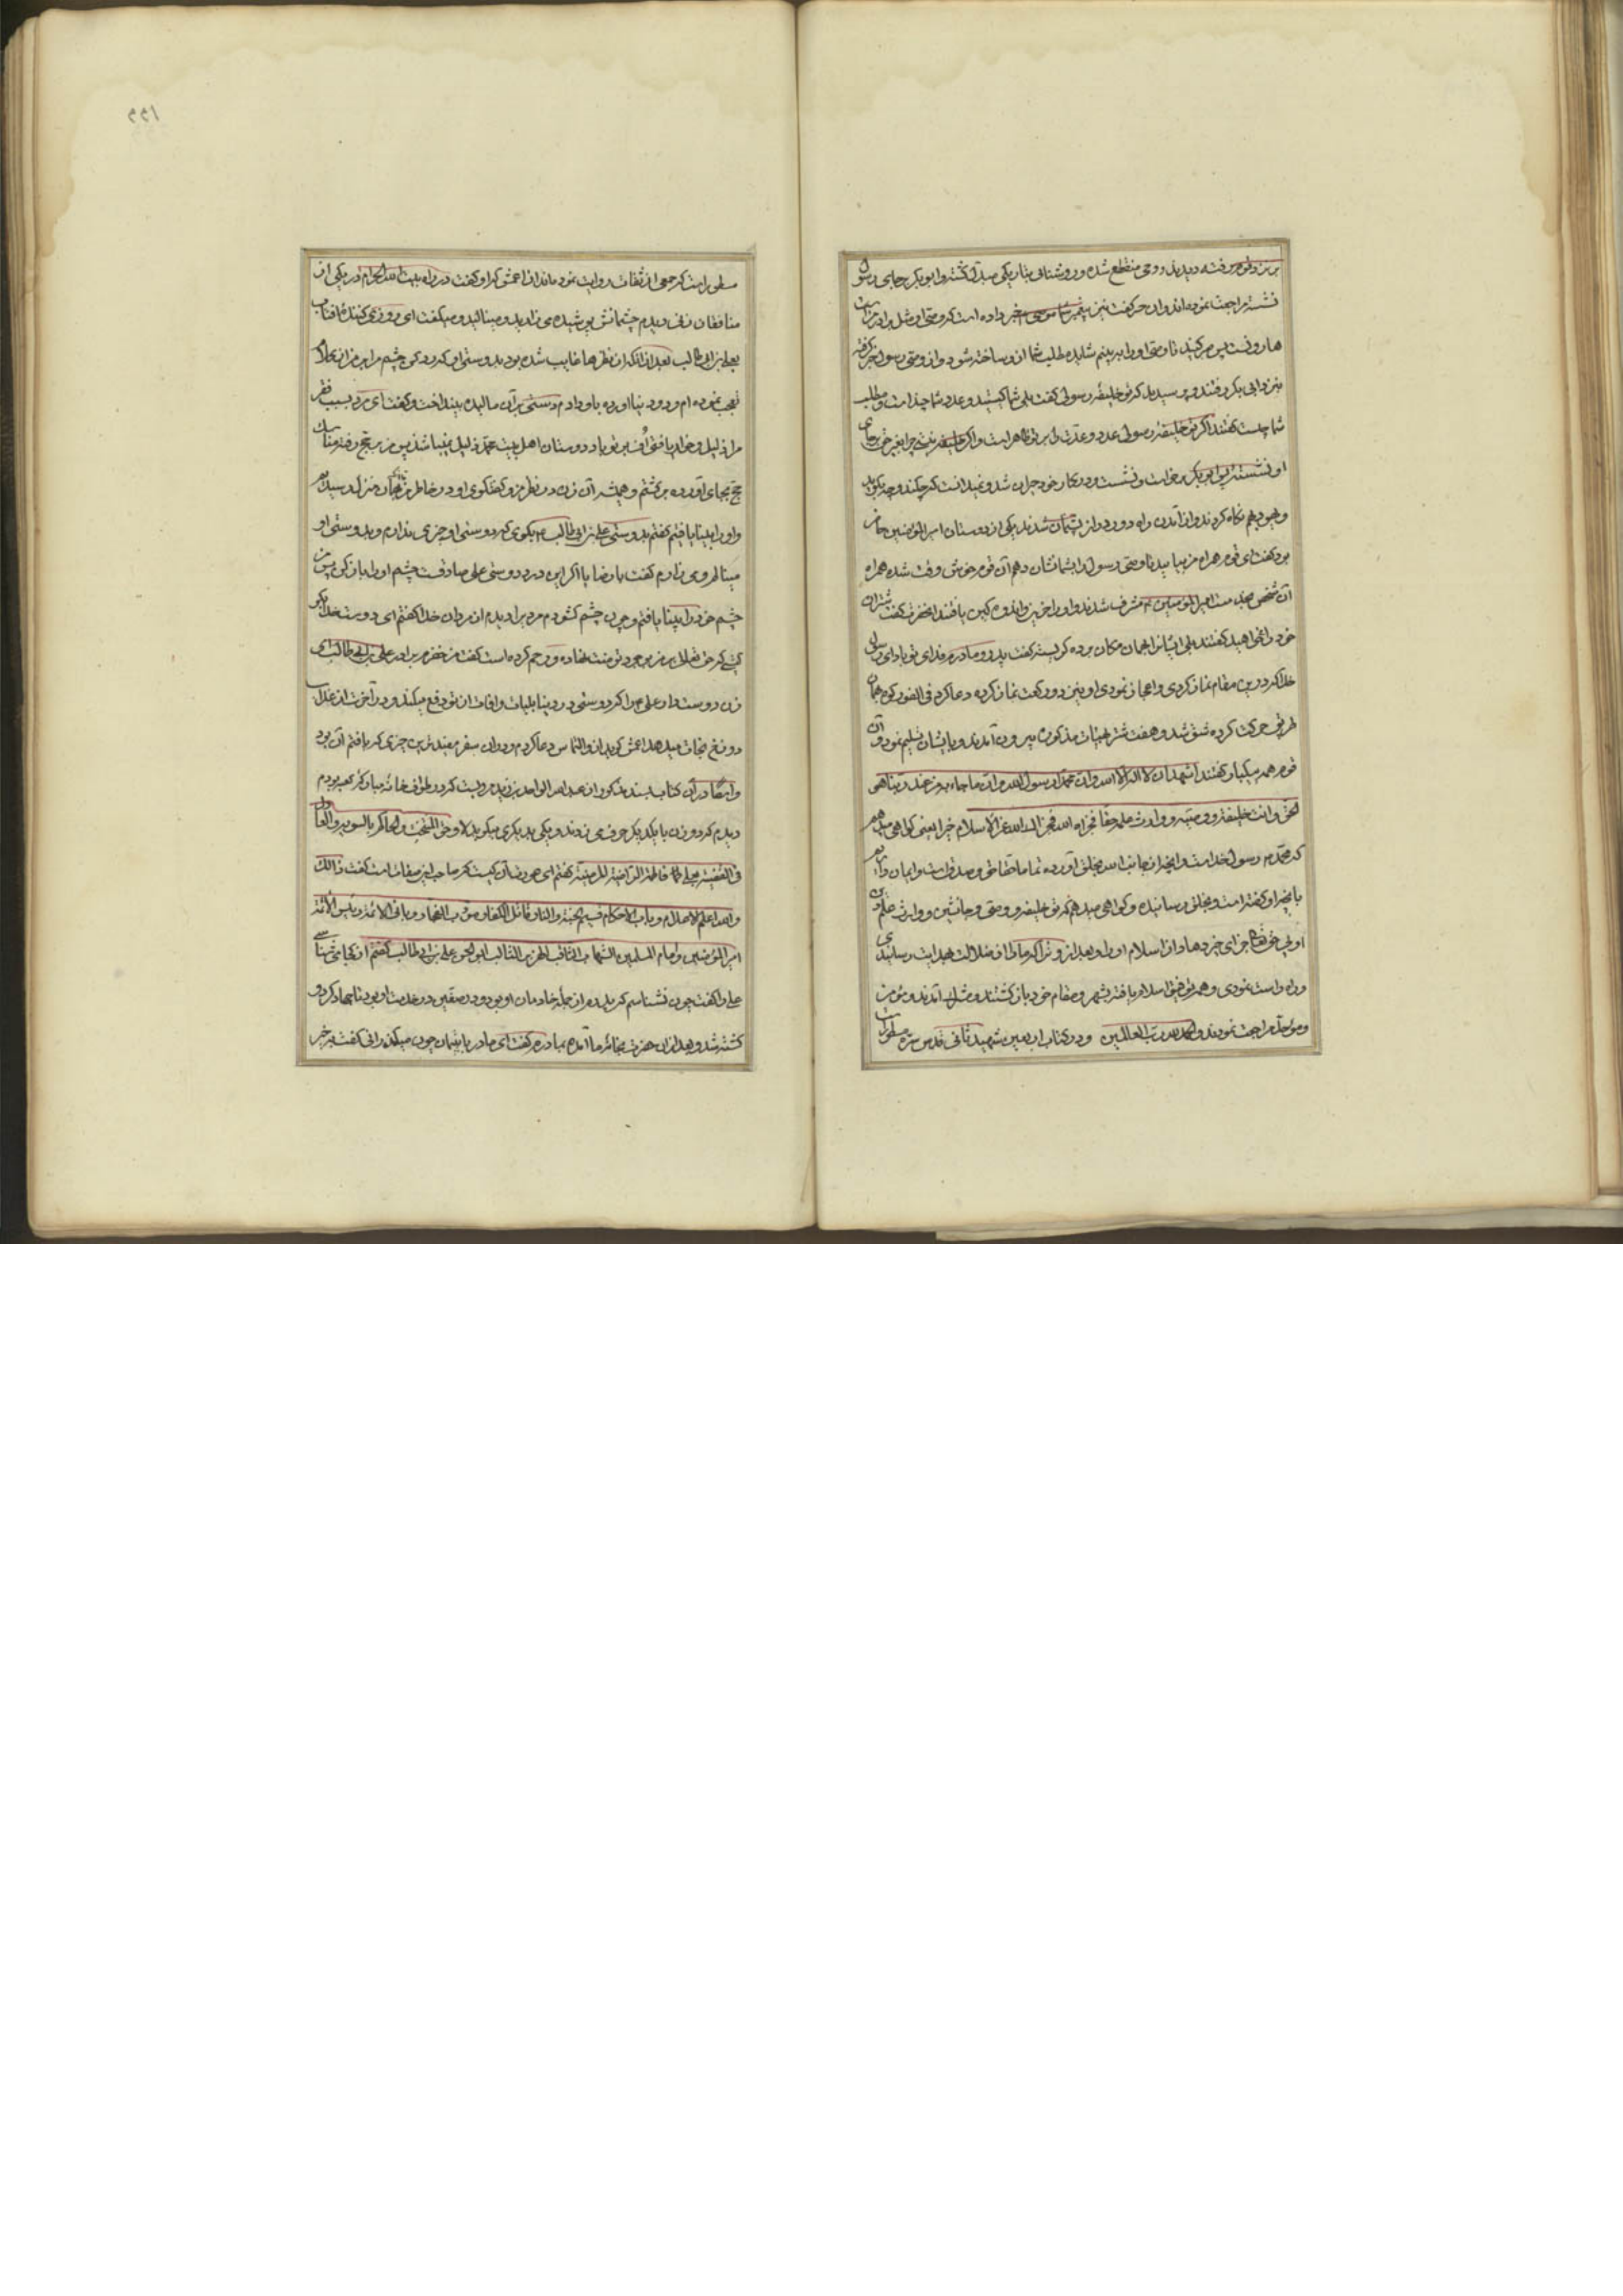 نشسته مراجعت نموده‌اند و آن حر گفت نیز پیغمبر شما موسی خبر داده است که وصی او مثل برادر من
هارونست پس صبر کنید تا وصی او را ببینم شاید مطلب شما از او ساخته شود و از وصی رسول خبر گرفته
نزد ابی بکر رفتند و پرسیدند که تو خلیفهٔ رسولی گفت بلی شما کیستید و عدد شما چند است و مطلب
شما چیست گفتند اگر تو خلیفهٔ رسولی عدد و عدّت ما بر تو ظاهر است و اگر خلیفه نیستی چرا بغیر حق بجای
او نشستهٔ ابو بکر برخواست و نشست و در کار خود حیران شد و نمیدانست که چکند و چه بگوید
و یهود بهم نگاه کردند و از آمدن راه دور و دراز پشیمان شدند یکی از دوستان امیر المؤمنین حاضر
بود گفت ای قوم همراه من بیایید تا وصی رسول را بشما نشان دهم آن قوم خوش وقت شده همراه
آن شخص بخدمت امیر المؤمنین مشرف شدند و او را حزین و اندوه‌گین یافتند انحضرت گفت شتران
خود را میخواهید گفتند بلی ایشانرا بهمان مکان برده گریست گفت پدر و مادرم فدای تو باد ای رسول
خدا که در این مقام نماز کردی و اعجاز نمودی او نیز دو رکعت نماز کرده دعا کرد فی الفور کوه بهمان
طریق حرکت کرده شق شد و هفت شتر بهیئات مذکوره بیرون آمدند و بایشان تسلیم نمود و آن
قوم همه بیکبار گفتند اشهد ان لا اله الا الله و ان محمدا رسول الله و ان ما جاء به من عند ربنا هو
الحق و انت خلیفته و وصیه و وارث علمه حقا فجزاه الله و جزاک الله عن الاسلام خیرا یعنی گواهی میدهیم
که محمد رسول خداست و آنچه از جانب الله بخلق آورده تماما حقا حق و صدق است و ایمان داریم
بآنچه او گفته است و بخلق رسانیده و گواهی میدهیم که تو خلیفه و وصی و جانشین و وارث علم
اویی حق تعالی جزای خیر دهاد از اسلام او را و بعد از او ترا که ما را از ضلالت بهدایت رسانیدی
و راه راست نمودی و همه توفیق اسلام یافته بشهر و مقام خود باز گشتند و مشرک آمدند و مؤمن
و موحد مراجعت نمودند و الحمد لله رب العالمین و در کتاب اربعین شهید ثانی قدس سره مسطور است
مسطور است که جمعی از ثقات روایت نموده‌اند از اعمش که او گفت در راه بیت الله الحرام در یکی از
منافقان زنی دیدم چشمانش پوشیده می‌زارید و مینالید و میگفت ای روزی کنندهٔ آفتاب
بعلی بن ابی طالب بعد از آنکه از نظرها غایب شده بود بدوستی او که رد کن چشم مرا بر من از کلام او
تعجب نموده‌ام و دو دینار آورده باو دادم دستی بر آن مالیده بینداخت و گفت ای مرد بسبب فقر
مرا ذلیل و خوار یافتی اُف بر تو باد دوستان اهل بیت محمد ذلیل نمیباشند پس من بحج رفته مناسک
حج بجای آورده برگشتم و همیشه آن زن در نظر من و گفتگوی او در خاطر من تا بهمان منزل رسیدم
و او را بینا یافتم گفتم بدوستی علی بن ابی طالب بگوی که دوستی او چه
چشم خود را بینا یافتم و چون چشم گشودم مردی را دیدم از مردان خدا گفتم ای دوست خدا بگو
کیستی که حق تعالی بر من بوجود تو منت نهاده و رحم کرده است گفت من خضرم برادر علی بن ابی طالب ای
زن دوست دار علی را که دوستی او در دنیا بلیات و آفات از تو دفع میکند و در آخرت از عذاب
دوزخ نجات میدهد اعمش گوید از او التماس دعا کردم و در آن سفر مفیدترین چیزی که یافتم آن بود
و ایضا در آن کتاب بسند مذکور از عبد الواحد بن زید مرویست که در طواف خانه مبارکهٔ کعبه بودم
دیدم که دو زن با یکدیگر حرف می‌زدند و یکی بدیگری میگوید لا و حق المنتجب و الحاکم بالسویة و العادل
فی القضیة بعل فاطمة الراضیة المرضیة گفتم ای عورت آن کیست که صاحب این صفات است گفت ذالک
و الله اعلم الاعلام و باب الاحکام قسیم الجنة و النار و قاتل الکفار و مؤدب الفجار و ربانی الامة و رئیس الائمة
امیر المؤمنین و امام المسلمین الشهاب الثاقب الهزبر الغالب ابو الحسن علی بن ابی طالب گفتم از کجا می شناسی
علی را گفت چون نشناسم که پدرم از جمله خادمان او بود و در صفین در خدمت او بود تا جهاد کرد و
کشته شد و بعد از آن حضرت بخانهٔ ما آمده بمادرم گفت ای مادر یتیمان چون میگذرانی گفت بخیر